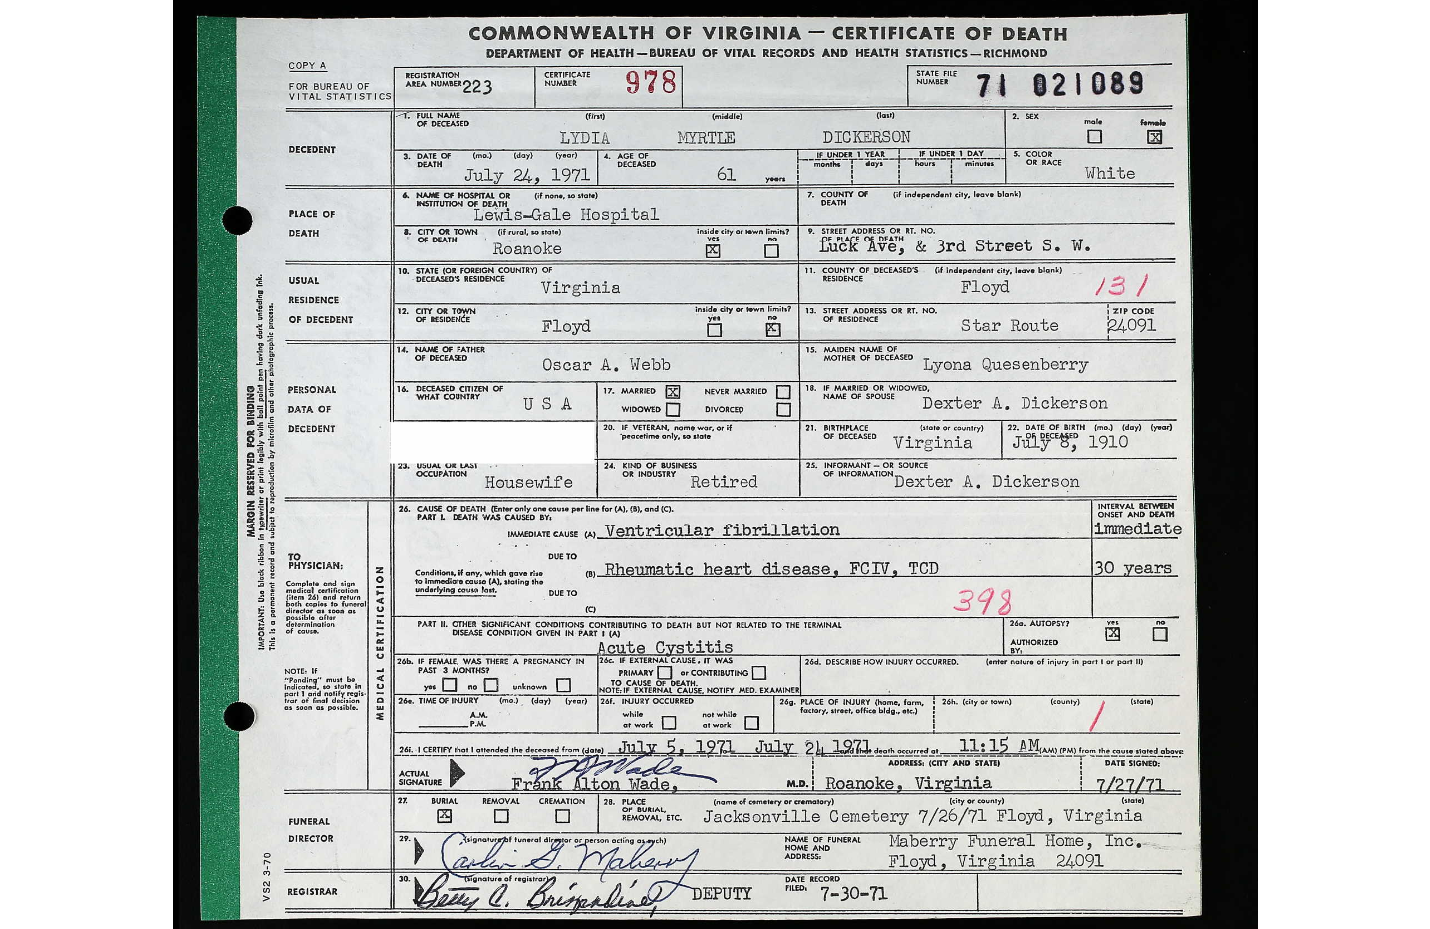 COMMONWEALTH OF VIRGINIA — CERTIFICATE OF DEATH
DEPARTMENT OF HEALTH—BUREAU OF VITAL RECORDS AND HEALTH STATISTICS—RICHMOND
COPY A
FOR BUREAU OF VITAL STATISTICS
REGISTRATION AREA NUMBER 223
CERTIFICATE NUMBER 978
STATE FILE NUMBER 71 021089
DECEDENT
1. FULL NAME OF DECEASED (first) (middle) (last)
LYDIA MYRTLE DICKERSON
2. SEX male female X
3. DATE OF DEATH (mo.) (day) (year)
July 24, 1971
4. AGE OF DECEASED
61 years
IF UNDER 1 YEAR months days
IF UNDER 1 DAY hours minutes
5. COLOR OR RACE
White
PLACE OF DEATH
6. NAME OF HOSPITAL OR INSTITUTION OF DEATH (if none, so state)
Lewis-Gale Hospital
7. COUNTY OF DEATH (if independent city, leave blank)
8. CITY OR TOWN OF DEATH (if rural, so state)
Roanoke
inside city or town limits? yes X no
9. STREET ADDRESS OR RT. NO. OF PLACE OF DEATH
Luck Ave, & 3rd Street S. W.
USUAL RESIDENCE OF DECEDENT
10. STATE (OR FOREIGN COUNTRY) OF DECEASED'S RESIDENCE
Virginia
11. COUNTY OF DECEASED'S RESIDENCE (if independent city, leave blank)
Floyd 131
12. CITY OR TOWN OF RESIDENCE
Floyd
inside city or town limits? yes no X
13. STREET ADDRESS OR RT. NO. OF RESIDENCE
Star Route
ZIP CODE
24091
PERSONAL DATA OF DECEDENT
14. NAME OF FATHER OF DECEASED
Oscar A. Webb
15. MAIDEN NAME OF MOTHER OF DECEASED
Lyona Quesenberry
16. DECEASED CITIZEN OF WHAT COUNTRY
U S A
17. MARRIED X NEVER MARRIED
WIDOWED DIVORCED
18. IF MARRIED OR WIDOWED, NAME OF SPOUSE
Dexter A. Dickerson
20. IF VETERAN, name war, or if peacetime only, so state
21. BIRTHPLACE OF DECEASED (state or country)
Virginia
22. DATE OF BIRTH OF DECEASED (mo.) (day) (year)
July 8, 1910
23. USUAL OR LAST OCCUPATION
Housewife
24. KIND OF BUSINESS OR INDUSTRY
Retired
25. INFORMANT — OR SOURCE OF INFORMATION
Dexter A. Dickerson
MARGIN RESERVED FOR BINDING
IMPORTANT: Use black ribbon in typewriter or print legibly with ball point pen having dark unfading ink.
This is a permanent record and subject to reproduction by microfilm and other photographic process.
VS2 3-70
TO PHYSICIAN:
Complete and sign medical certification (item 26) and return both copies to funeral director as soon as possible after determination of cause.
NOTE: IF "Pending" must be indicated, so state in part I and notify registrar of final decision as soon as possible.
MEDICAL CERTIFICATION
26. CAUSE OF DEATH (Enter only one cause per line for (A), (B), and (C).
PART I. DEATH WAS CAUSED BY:
INTERVAL BETWEEN ONSET AND DEATH
IMMEDIATE CAUSE (A) Ventricular fibrillation immediate
DUE TO
Conditions, if any, which gave rise to immediate cause (A), stating the underlying cause last.
(B) Rheumatic heart disease, FCIV, TCD 30 years
DUE TO
(C) 398
PART II. OTHER SIGNIFICANT CONDITIONS CONTRIBUTING TO DEATH BUT NOT RELATED TO THE TERMINAL DISEASE CONDITION GIVEN IN PART I (A)
Acute Cystitis
26a. AUTOPSY? yes X no
AUTHORIZED BY:
26b. IF FEMALE, WAS THERE A PREGNANCY IN PAST 3 MONTHS?
yes no unknown
26c. IF EXTERNAL CAUSE, IT WAS
PRIMARY or CONTRIBUTING
TO CAUSE OF DEATH.
NOTE: IF EXTERNAL CAUSE, NOTIFY MED. EXAMINER
26d. DESCRIBE HOW INJURY OCCURRED. (enter nature of injury in part I or part II)
26e. TIME OF INJURY (mo.) (day) (year)
A.M.
P.M.
26f. INJURY OCCURRED
while at work not while at work
26g. PLACE OF INJURY (home, farm, factory, street, office bldg., etc.)
26h. (city or town) (county) (state)
26i. I CERTIFY that I attended the deceased from (date) July 5, 1971 July 24 1971 and that death occurred at 11:15 AM (AM) (PM) from the cause stated above
ACTUAL SIGNATURE
Frank Alton Wade, M.D.
ADDRESS: (CITY AND STATE)
Roanoke, Virginia
DATE SIGNED:
7/27/71
FUNERAL DIRECTOR
27. BURIAL X REMOVAL CREMATION
28. PLACE OF BURIAL, REMOVAL, ETC. (name of cemetery or crematory) (city or county) (state)
Jacksonville Cemetery 7/26/71 Floyd, Virginia
29. (signature of funeral director or person acting as such)
Carlin G. Maberry
NAME OF FUNERAL HOME AND ADDRESS:
Maberry Funeral Home, Inc.
Floyd, Virginia 24091
REGISTRAR
30. (signature of registrar)
Betty C. DEPUTY
DATE RECORD FILED: 7-30-71